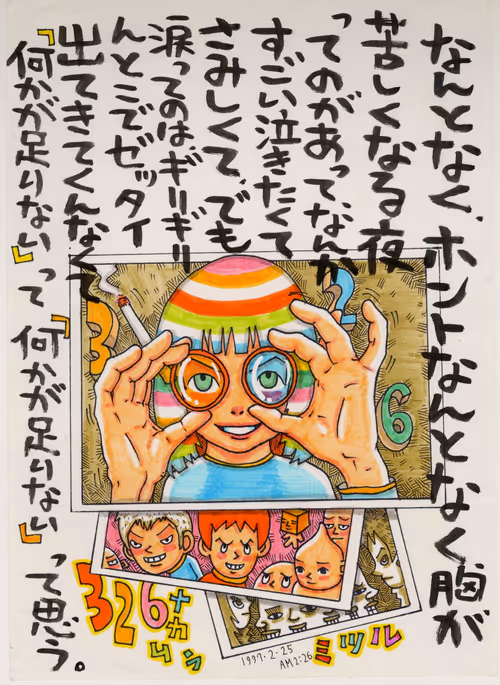 なんとなく、ホントなんとなく胸が
苦しくなる夜
ってのがあって、なんか
すごい泣きたくて
さみしくて、でも
涙ってのは、ギリギリ
んとこでゼッタイ
出てきてくんなくて
「何かが足りない」って「何かが足りない」って思う。
3
2
6
326
ナカムラ
ミツル
1997・2・25
AM2:26